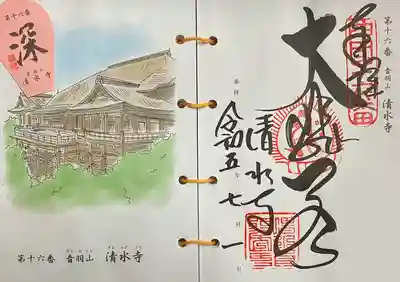 第十六番
深
清水寺
第十六番 音羽山 清水寺
第十六番 音羽山 清水寺
奉拝
大悲閣
清水寺
令和五年七月一日